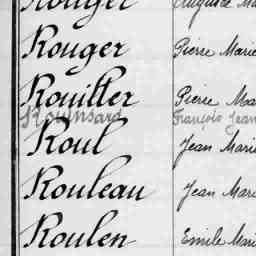 Rouger Auguste Ma
Rouger Pierre Marie
Rouiller Pierre Mar
Rouinsard François Jean
Roul Jean Marie
Rouleau Jean Mar
Roulen Emile Mari